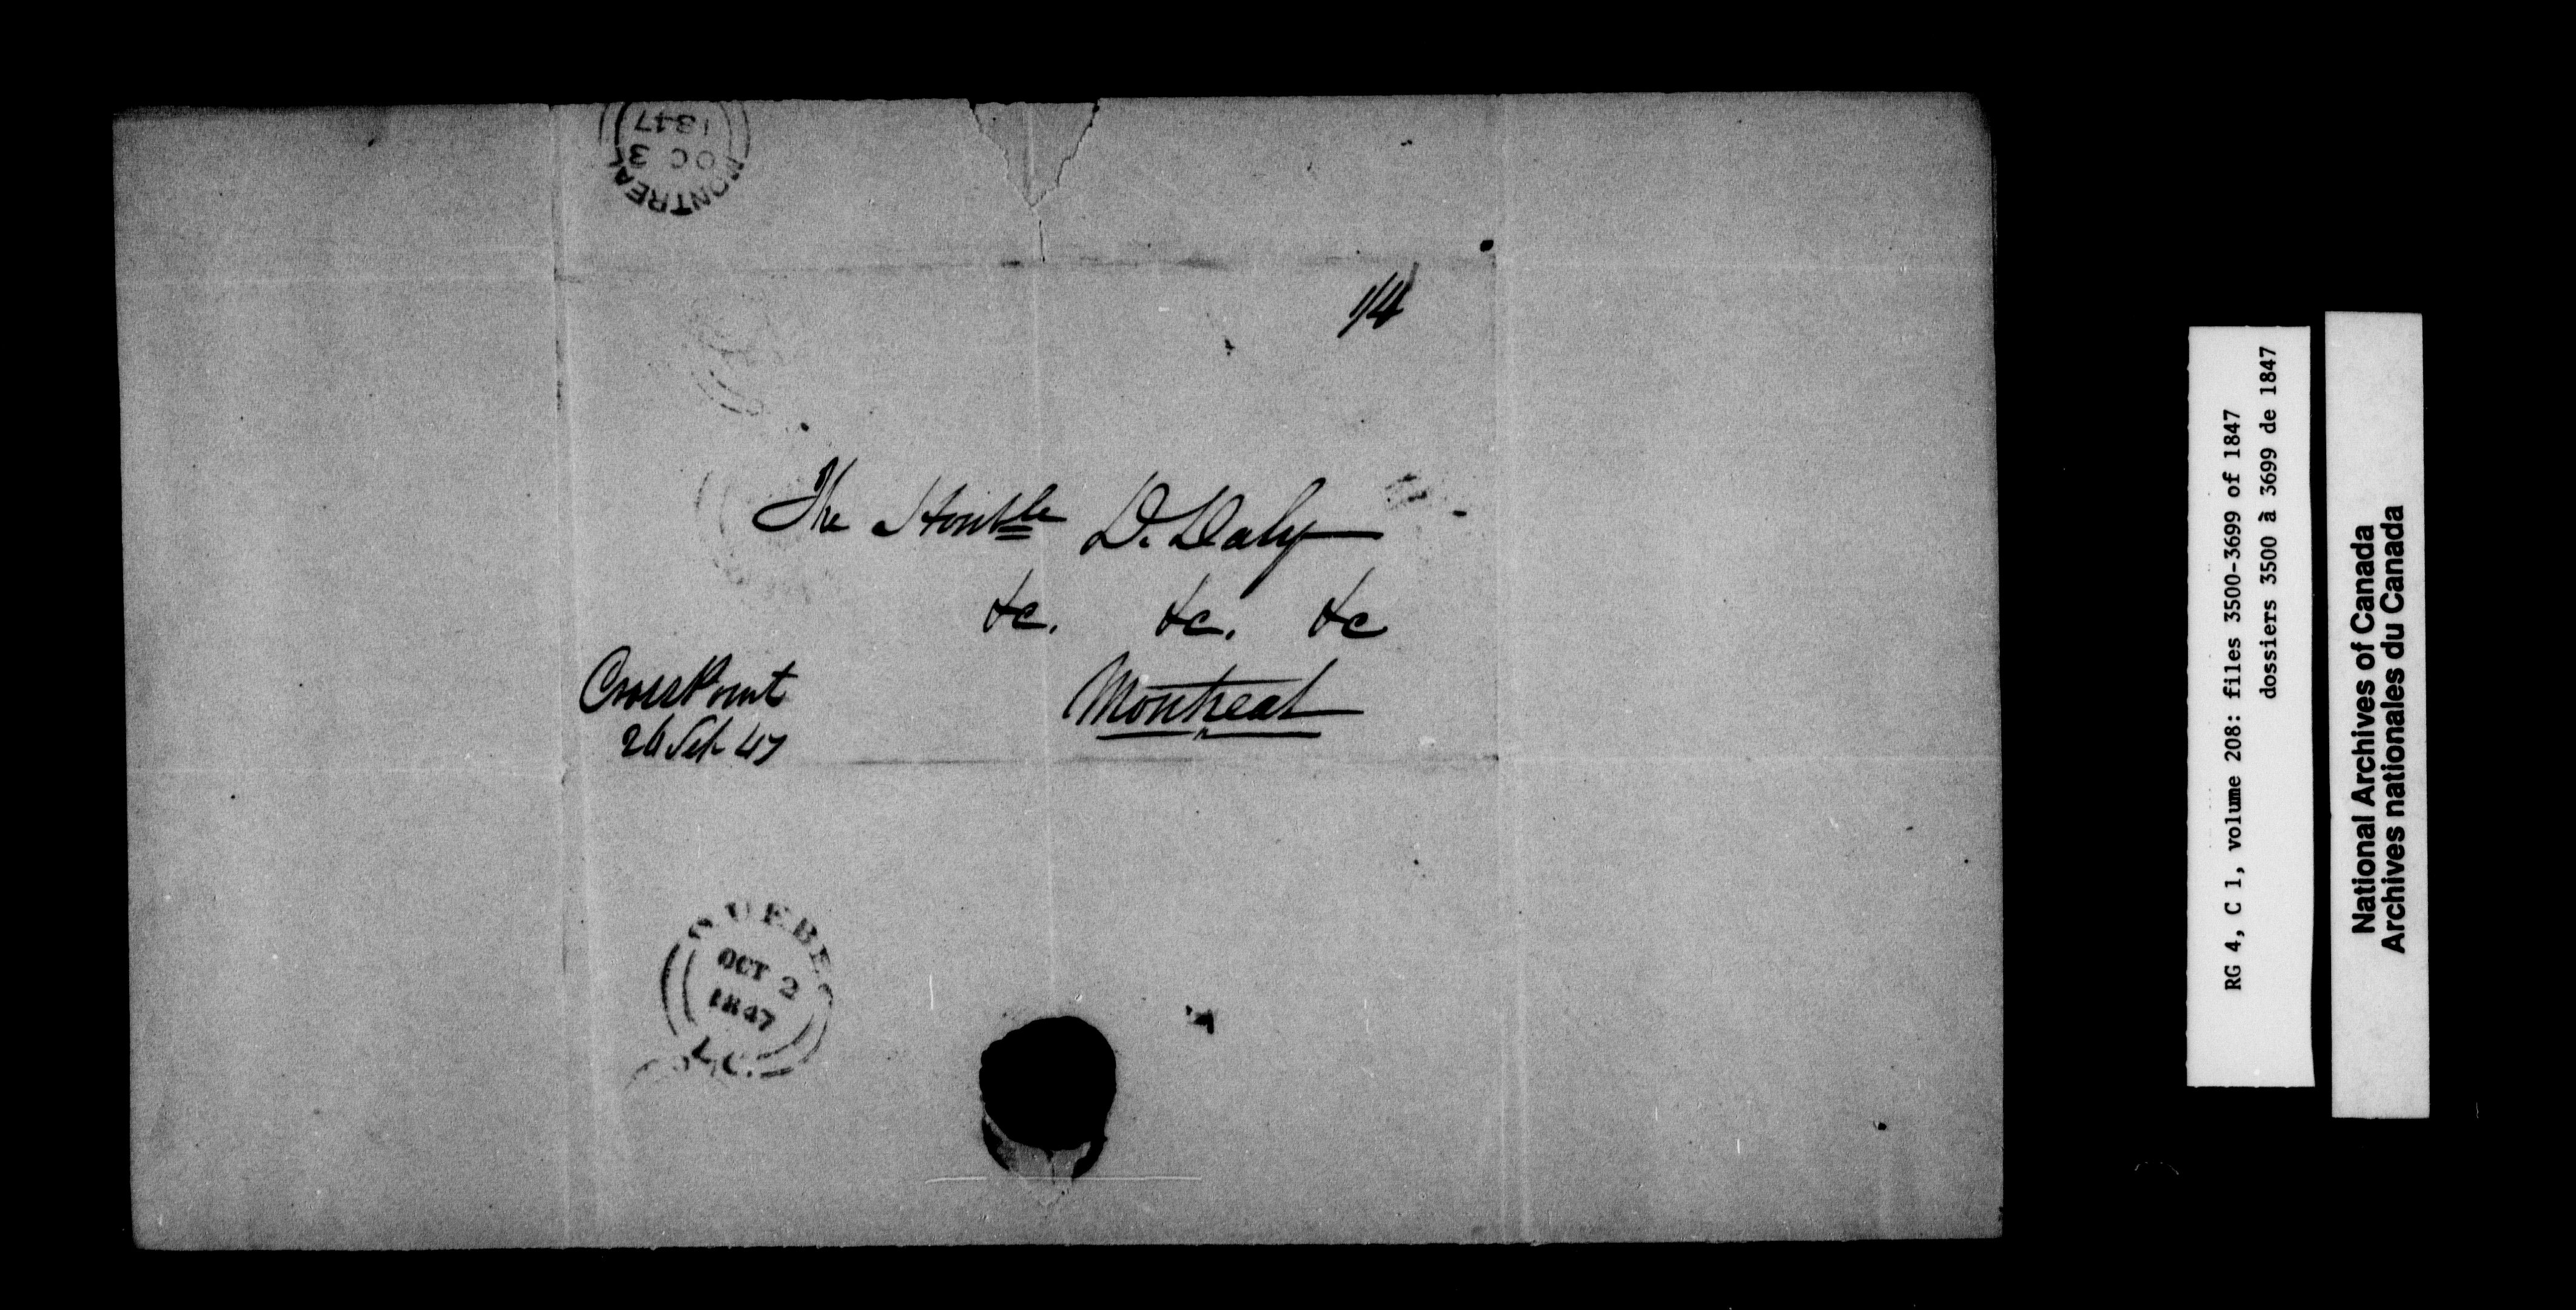 MONTREAL
OC 3
1847
1/4
The Honble D. Daly
&c. &c. &c
Montreal
Cross Point
26 Sep 47
QUEBEC
OCT 2
1847
L.C.
RG 4, C 1, volume 208: files 3500-3699 of 1847
dossiers 3500 à 3699 de 1847
National Archives of Canada
Archives nationales du Canada